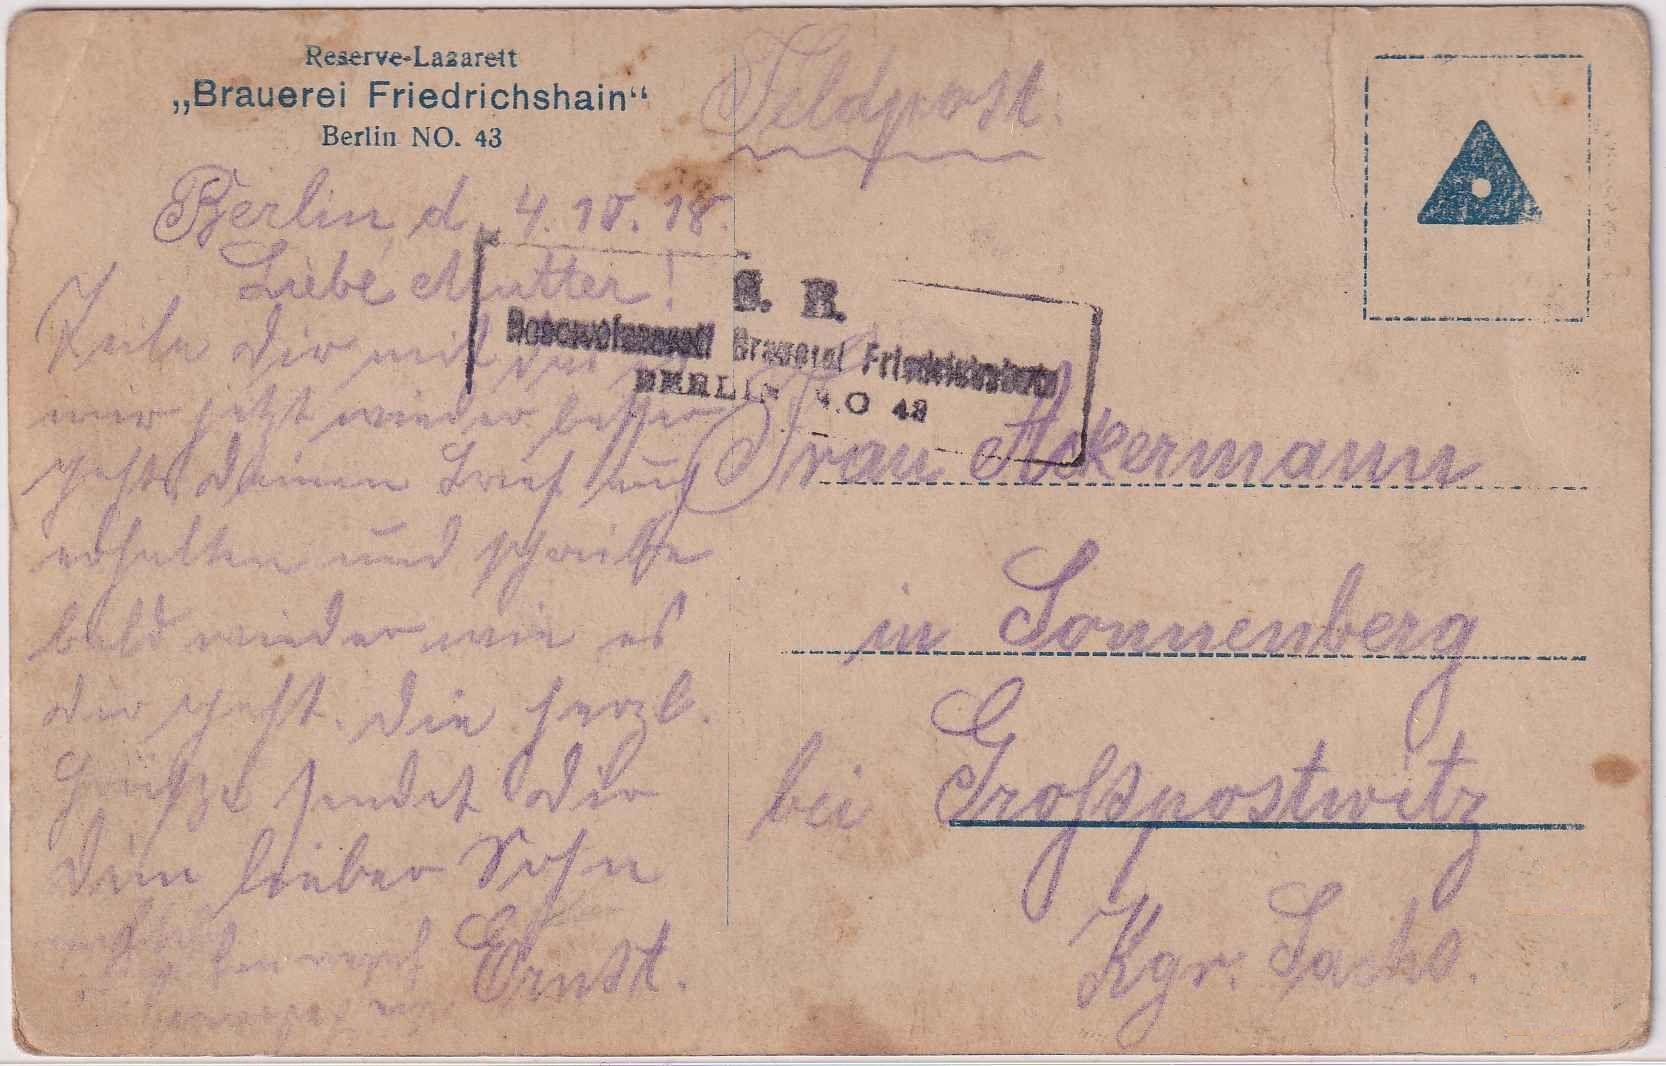 Reserve-Lazarett
„Brauerei Friedrichshain“
Berlin NO. 43
Feldpost.
Berlin, d. 4.10.18.
Liebe Mutter!
S. B.
Reservelazarett Brauerei Friedrichshain
BERLIN N.O 43
Teile dir mit das
mir jetzt wieder besser
gehts deinen Brief auch
erhalten und schreibe
bald wieder wie es
dir geht. die herzl.
Grüße sendet dir
dein lieber Sohn
Ernst.
Frau Ackermann
in Sonnenberg
bei Großpostwitz
Kgr. Sachs.